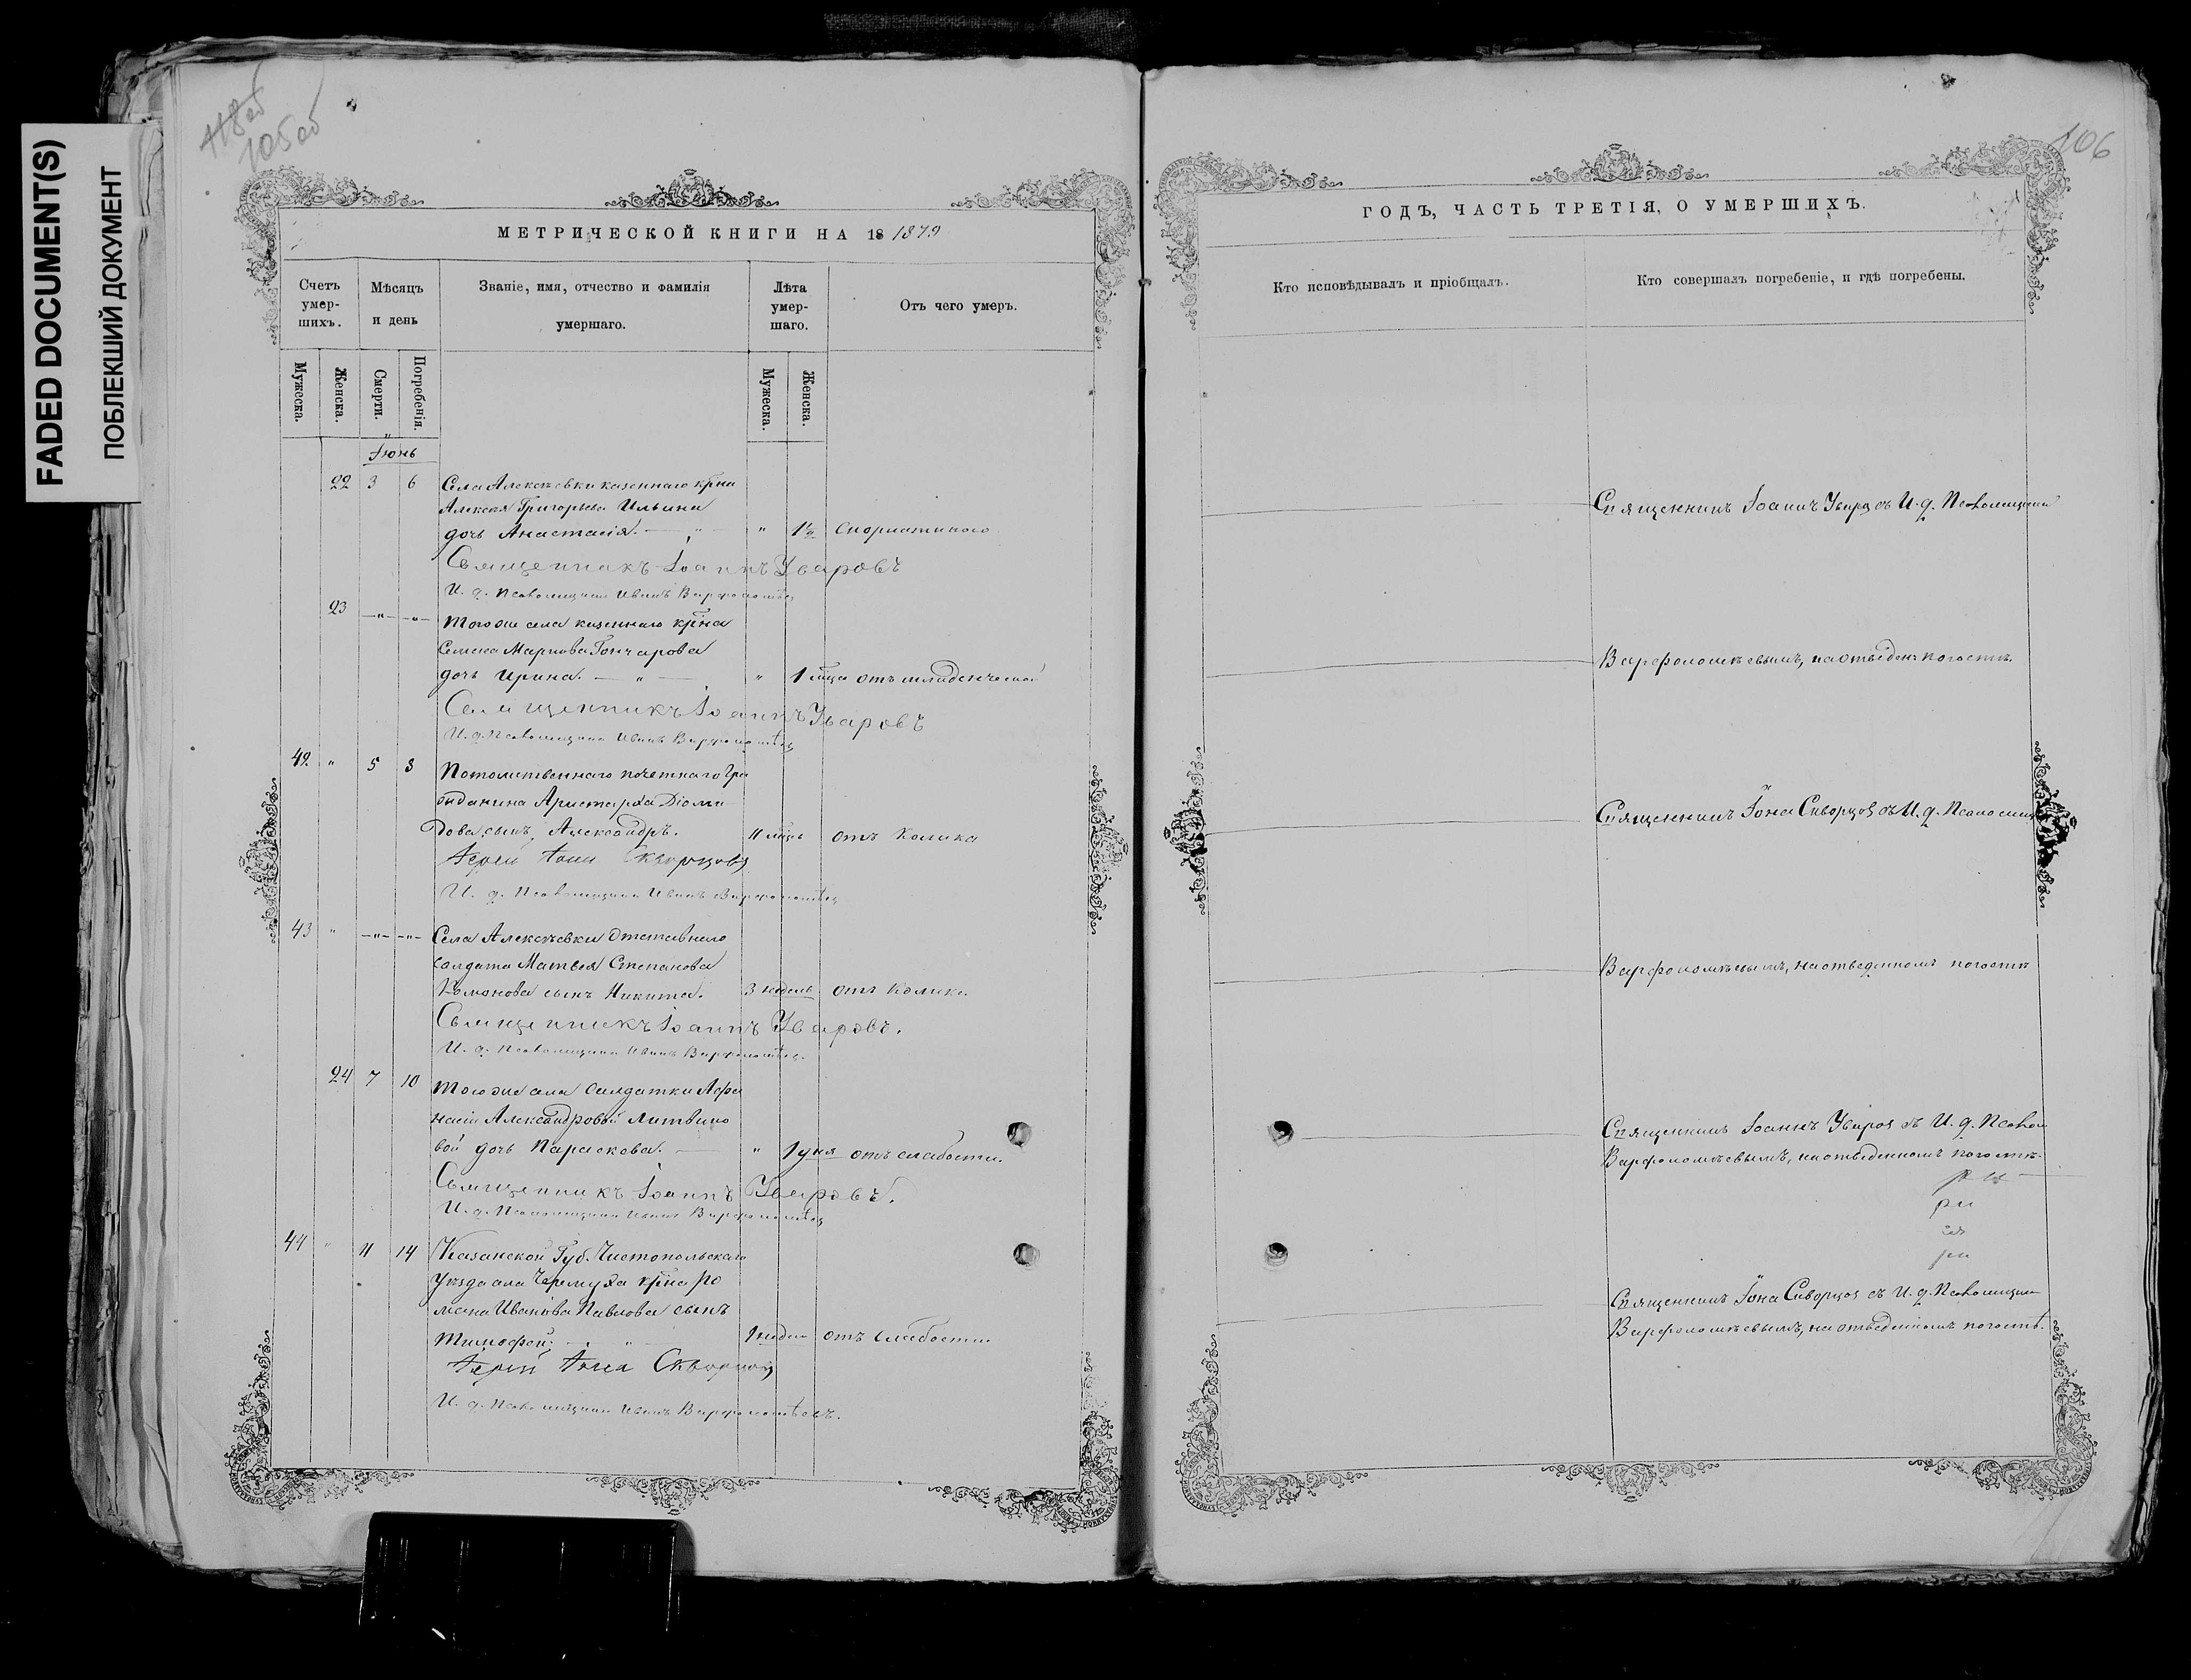 FADED DOCUMENT(S)
ПОБЛЕКШИЙ ДОКУМЕНТ
118 об
105 об
МЕТРИЧЕСКОЙ КНИГИ НА 18 1879
Счетъ умер-шихъ.
Мѣсяцъ и день
Званіе, имя, отчество и фамилія умершаго.
Лѣта умер-шаго.
Отъ чего умеръ.
Мужеска.
Женска.
Смерти.
Погребенія.
Мужеска.
Женска.
Іюнь
22 3 6 Села Алексѣевки казеннаго крѣна
Алексѣя Григорьева Ильина
дочь Анастасія. — „ — „ 1½
Священникъ Іоаннъ Уваровъ
И. д. Псаломщика Иванъ Варфоломѣев
23 —„— —„— Того же села казеннаго крѣна
Семена Маркова Гончарова
дочь Ирина. — „ — „ 1 мца отъ младенческой
Священникъ Іоаннъ Уваровъ
И. д. Псаломщика Иванъ Варфоломѣев
42 „ 5 8 Потомственнаго почетнаго гра
жданина Аристарха Діоми
дова сынъ, Александръ. 11 мцъ отъ Колика
Іерей Іона Скворцовъ
И. д. Псаломщика Иванъ Варфоломѣев
43 „ —„— —„— Села Алексѣевки Отставнаго
солдата Матвея Степанова
сынъ Никита. 3 недель отъ Колики.
Священникъ Іоаннъ Уваровъ.
И. д. Псаломщика Иванъ Варфоломѣев.
24 7 10 Того же села Солдатки Афа
насіи Александровой Литвино
вой дочь Параскева. — „ 1 дня отъ слабости.
Священникъ Іоаннъ Уваровъ.
И. д. Псаломщика Иванъ Варфоломѣев
44 „ 11 14 Казанской Губ. Чистопольскаго
Уѣзда села Черемуха крѣна Ро
мана Иванова Павлова сынъ
Тимофей. — „ — 1 недел отъ слабости
Іерей Іона Скворцовъ
И. д. Псаломщика Иванъ Варфоломѣевъ.
106
ГОДЪ, ЧАСТЬ ТРЕТІЯ, О УМЕРШИХЪ.
Кто исповѣдывалъ и пріобщалъ.
Кто совершалъ погребеніе, и гдѣ погребены.
Священникъ Іоаннъ Уваровъ съ И. д. Псаломщика
Варфоломѣевымъ, на отведен погостѣ.
Священникъ Іона Скворцовъ съ И. д. Псаломщик
Варфоломѣевымъ, на отведенномъ погостѣ
Священникъ Іоаннъ Уваров съ И. д. Псалом
Варфоломѣевымъ, на отведенномъ погостѣ.
Священникъ Іона Скворцов съ И. д. Псаломщик
Варфоломѣевымъ, на отведенномъ погостѣ.